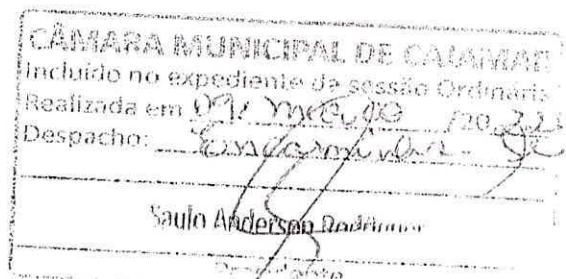 CÂMARA MUNICIPAL DE CAJAMAR
Incluído no expediente da sessão Ordinária
Realizada em 09/ março /20
Despacho: Encaminha-se
Saulo Anderson Rodrigues
Presidente